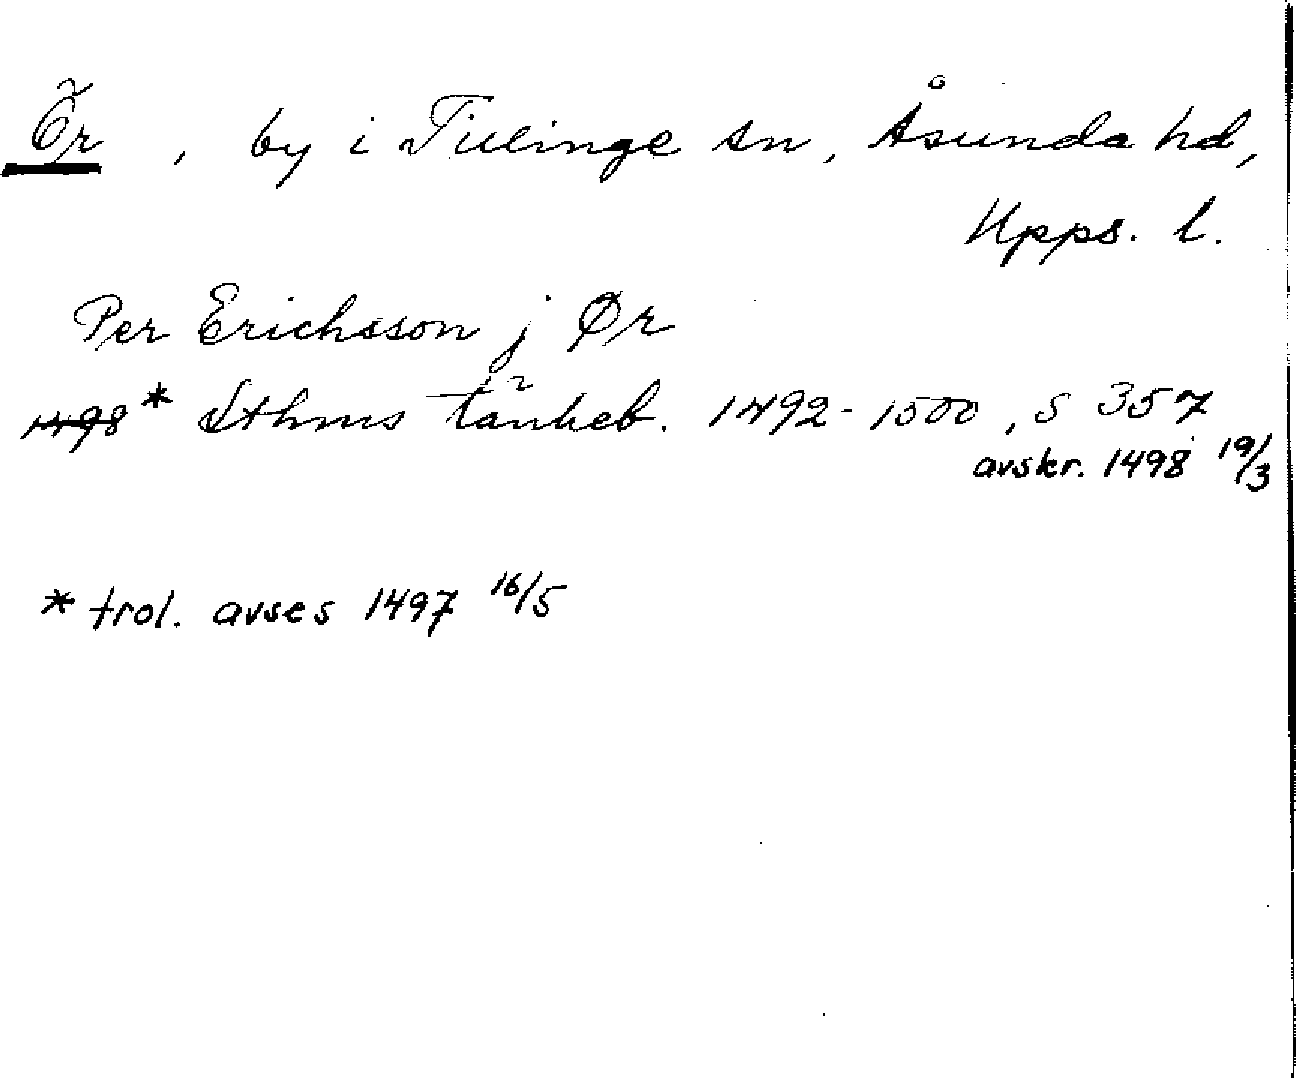 Ör, by i Tillinge sn, Åsunda hd,
Upps. l.
Per Erichsson j Ør
~~1498~~ * Sthms tänkeb. 1492-1500, s 357
avskr. 1498 19/3
* trol. avses 1497 16/5